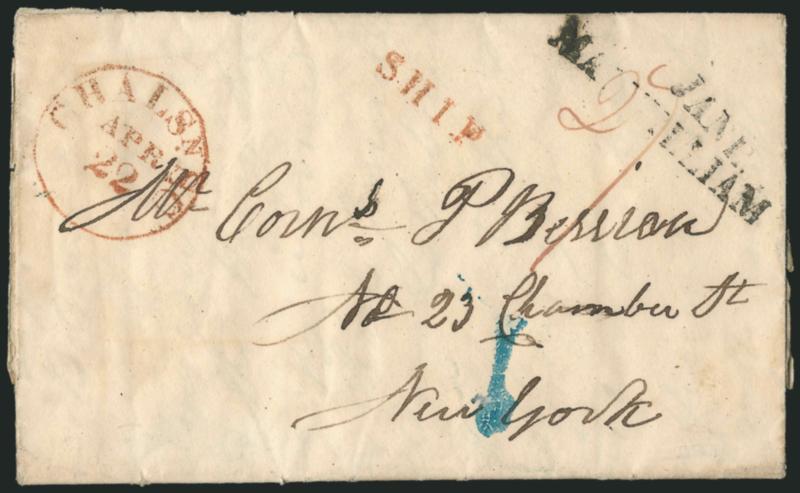 CHALSN
APR
22
SHIP
2/
Mr Corns P Berrian
No 23 Chamber St
New York